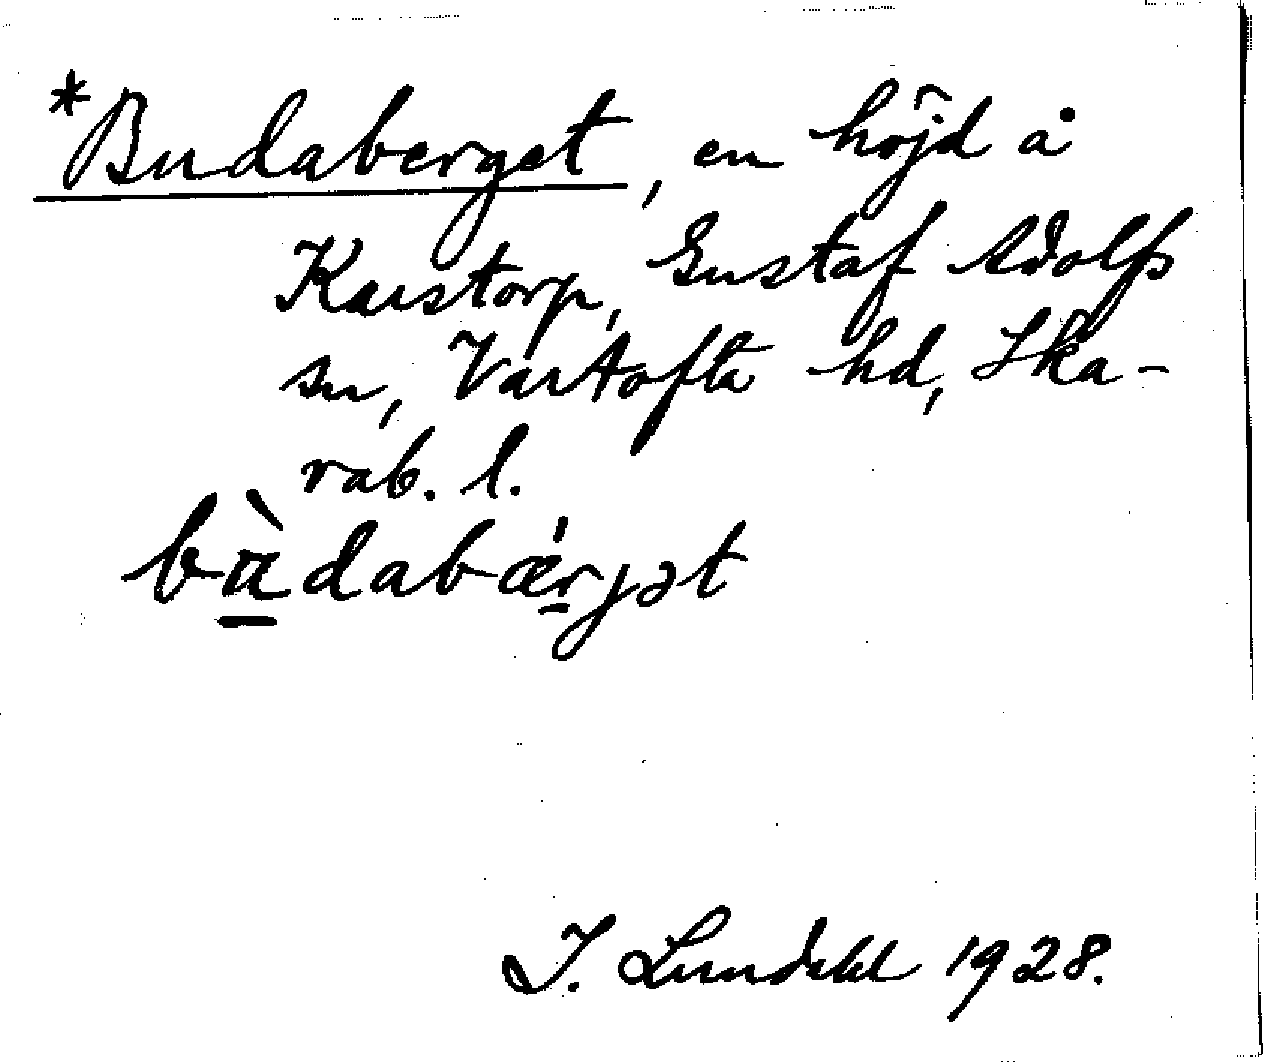 *Budaberget, en höjd å
Karstorp, Gustaf Adolfs
sn, Vartofta hd, Ska-
rab. l.
bàdabǽrgət
I. Lundahl 1928.